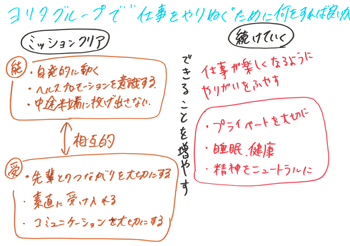 ヨリタグループで“仕事をやりぬく”ために何をすれば良いか
ミッションクリア
能
・自発的に動く
・ヘルスプロモーションを意識する
・中途半端に投げ出さない
相互的
受
・先輩とのつながりを大切にする
・素直に受け入れる
・コミュニケーションを大切にする
できることを増やす
続けていく
仕事が楽しくなるように
やりがいをふやす
・プライベートを大切に
・睡眠、健康
・精神をニュートラルに